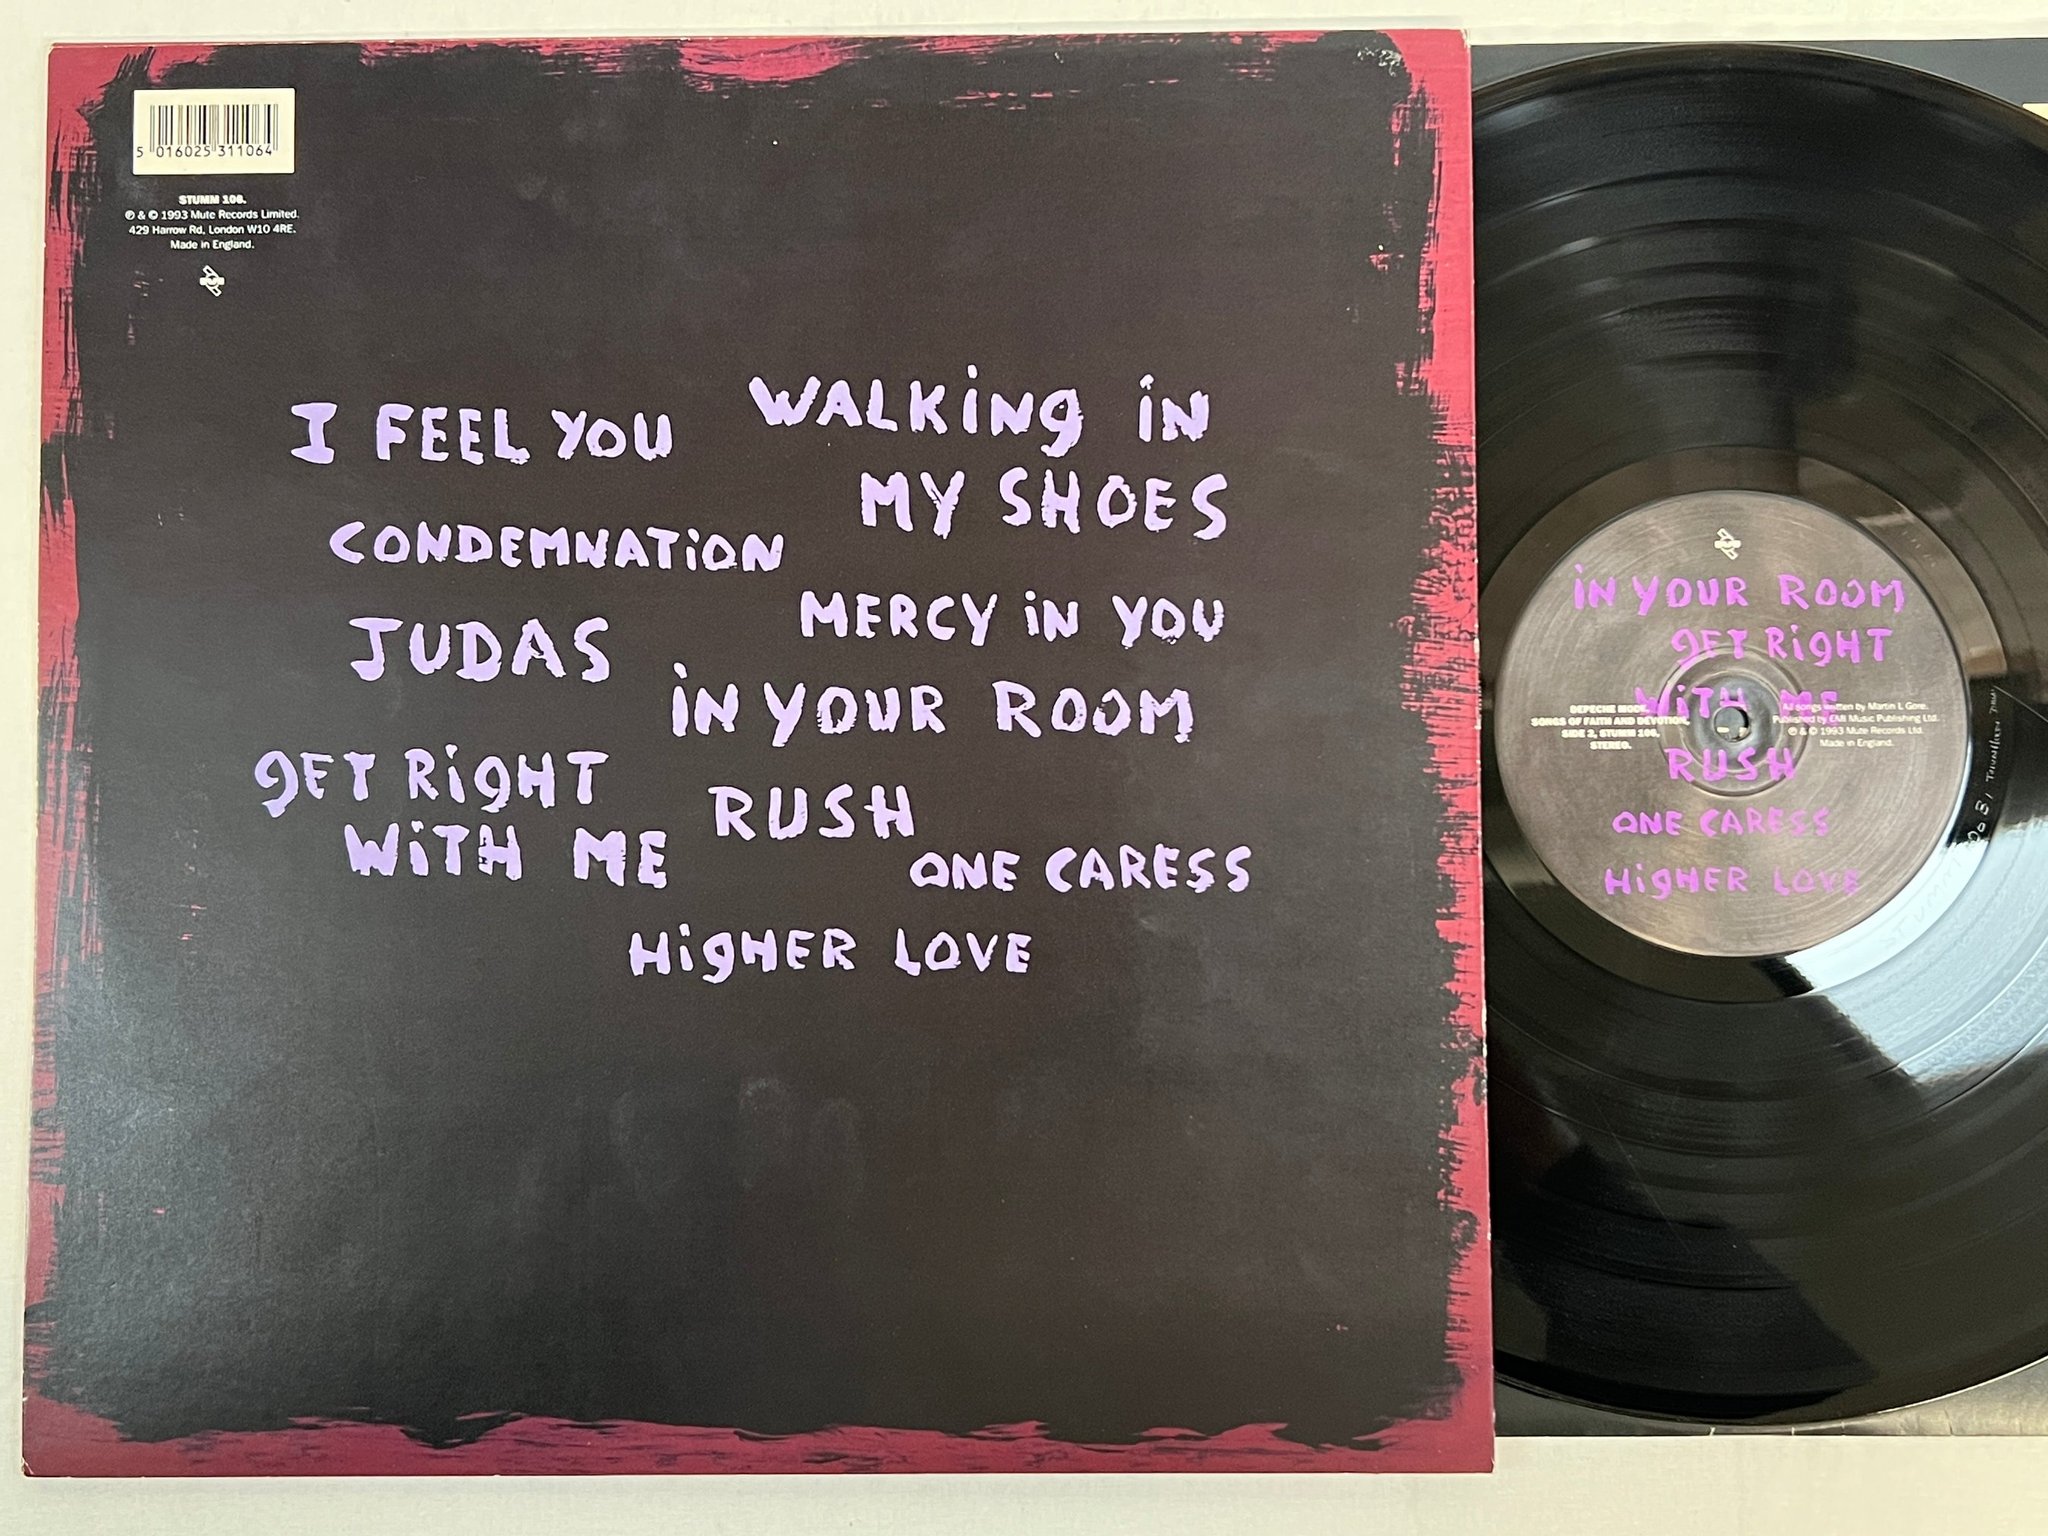 5 016025 311064
STUMM 106.
℗ & © 1993 Mute Records Limited.
429 Harrow Rd, London W10 4RE.
Made in England.
I FEEL YOU
WALKiNg iN
MY SHOES
CONDEMNATiON
MERCY iN YOU
JUDAS
iN YOUR ROOM
gET RigHT
WiTH ME
RUSH
ONE CARESS
HigHER LOVE
MUTE
iN YOUR ROOM
gET RigHT
WiTH ME
RUSH
ONE CARESS
HigHER LOVE
DEPECHE MODE.
SONGS OF FAITH AND DEVOTION.
SIDE 2, STUMM 106,
STEREO.
All songs written by Martin L Gore.
Published by EMI Music Publishing Ltd.
℗ & © 1993 Mute Records Ltd.
Made in England.